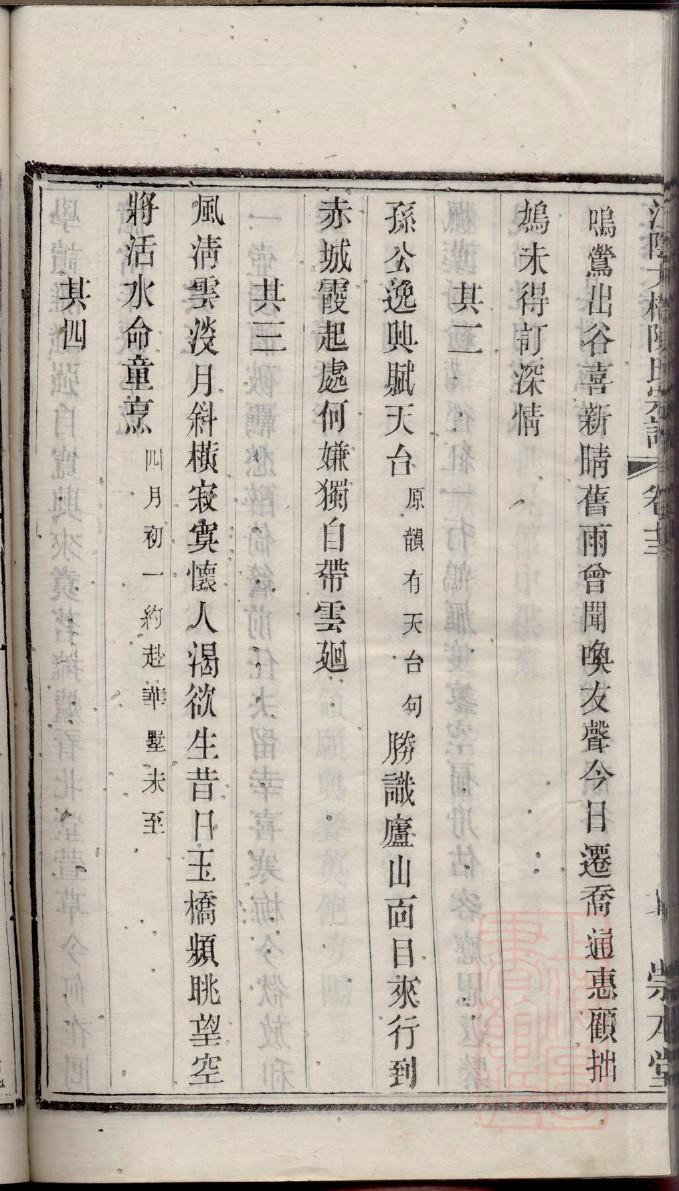 嗚鶯出谷喜新晴舊雨曾聞喚友聲今日遷喬通惠顧拙
鳩未得訂深情
其二
孫公逸興賦天台原韻有天台句勝識廬山面目來行到
赤城霞起處何嫌獨自帶雲廻
其三
風清雲淡月斜橫寂寞懷人渴欲生昔日玉橋頻眺望空
將活水命童烹四月初一約赴華墅未至
其四